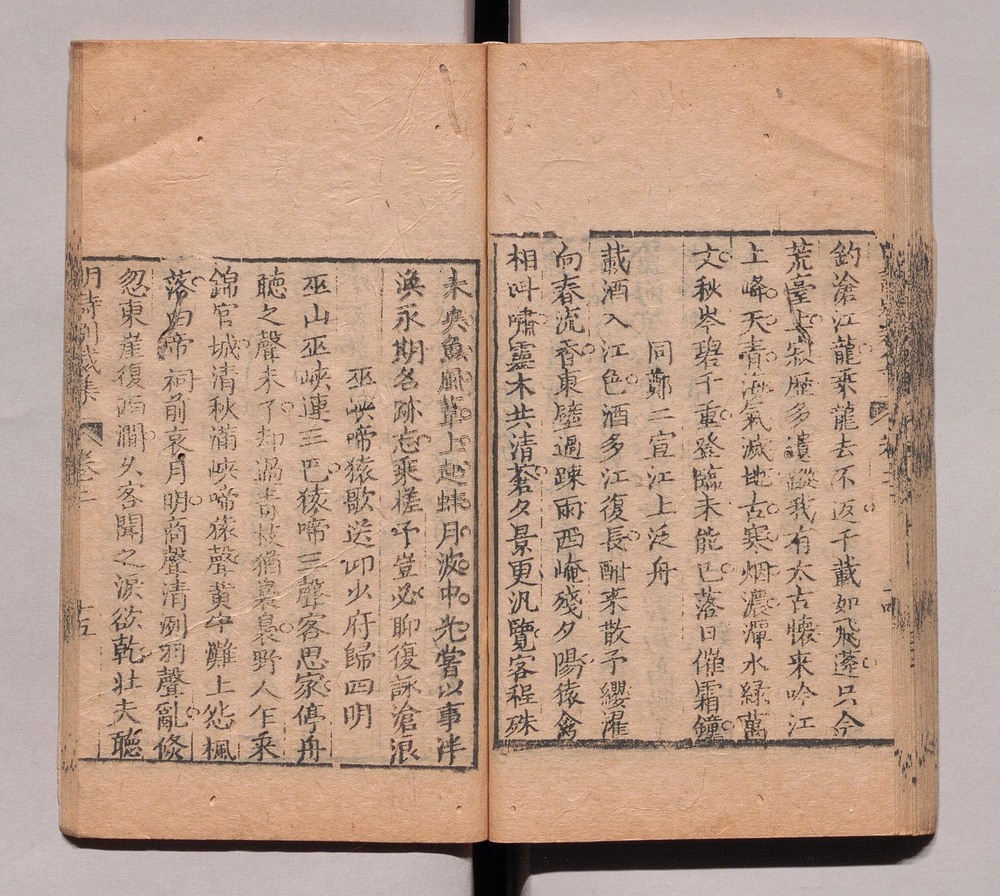 釣滄江龍乘龍去不返千載如飛蓬只今
荒臺上寂歷多遺蹤我有太古懷來吟江
上峰天青海氣滅地古寒烟濃潭水綠萬
文秋岑碧千重登臨未能已落日催霜鐘
同鄭二宣江上泛舟
載酒入江色酒多江復長酣來散予纓濯
向春流香東壁過踈雨西崦殘夕陽猿禽
相呌嘯靈木共清蒼夕景更汎覽客程殊
未央魚風葦上起蛛月波中光嘗以事伴
渙永期名跡忘乘槎予豈必聊復詠滄浪
巫峽啼猿歌送少府歸四明
巫山巫峽連三巴猿啼三聲客思家停舟
聴之聲未了却過青枝猶裊裊野人乍乘
錦官城清秋滿峽啼猿聲黃牛灘上怨楓
落白帝祠前哀月明商聲清冽羽聲亂倏
忽東崖復西澗久客聞之淚欲乾壯夫聴
明詩別裁集 卷二